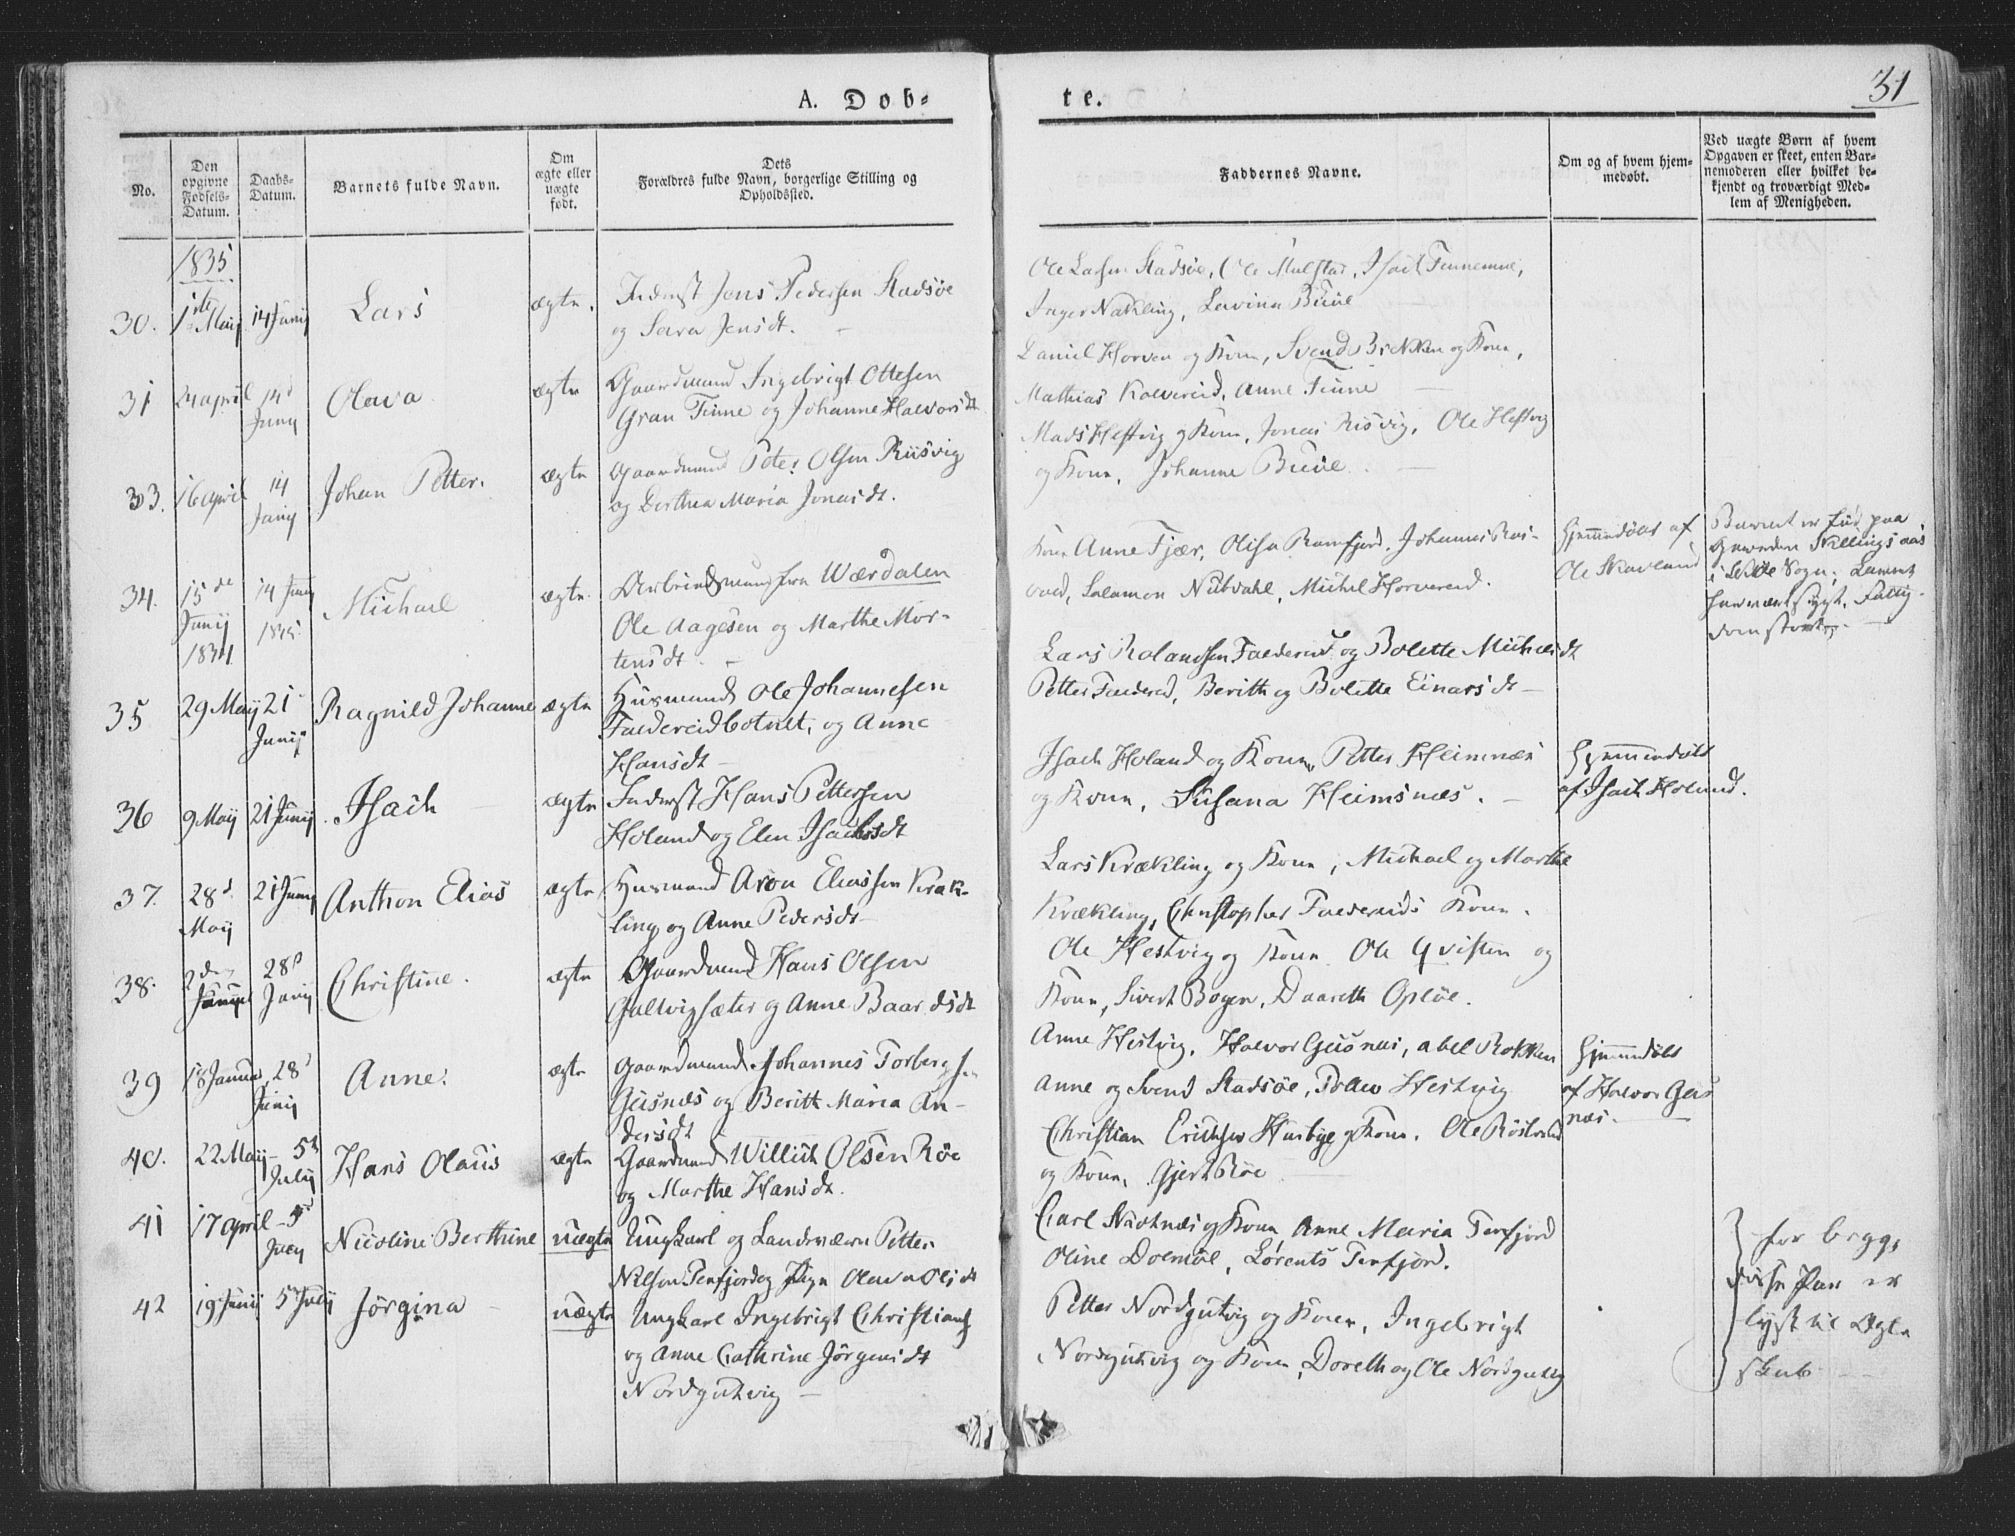 A. Døb=
te.
31
No.
Den opgivne Fødsels-Datum.
Daabs-Datum.
Barnets fulde Navn.
Om ægte eller uægte født.
Dets Forældres fulde Navn, borgerlige Stilling og Opholdssted.
Faddernes Navne.
Om og af hvem hjem-medøbt.
Ved uægte Børn af hvem Opgaven er skeet, enten Bar-nemoderen eller hvilket be-kjendt og troværdigt Med-lem af Menigheden.
1835
30. 1ste Maij 14 Junij Lars ægte. Inderst Jens Pedersen Stadsøe
og Sara Jensdt.
Ole Larsen Stadsøe, Ole Mulstad, Isach
Inger Nakling, Lavina Buüe
31 24 april 14d Junij Olava ægte Gaardmand Ingebrigt Ottesen
Gran Finne og Johanne Halvorsdt
Daniel Horven og Kone, Svend og Kone,
Mathias Kolvereid, Anne Finne
33. 16 april 14 Junij Johan Petter. ægte Gaardmand Peter Olsen Riisvig
og Dorthea Maria Jonasdt.
Mads Hestvig og Kone, Jonas Risvig, Ole Hestvig
og Kone, Johanne Buüe
34. 15de Junij 1834 14 Junij 1835 Michael ægte Arbeidsmand fra Wærdalen
Ole Aagesen og Marthe Mor-
tensdt.
Kone Anne Fjær, Olisa Ramfjord, Johannes Ros-
vold, Salamon Nubdahl, Michel Horvereid.
Hjemmedøbt af
Ole Skavland
Barnet er fød paa
Gaarden Skillingsaas
i Sogn;
har været sygt,
35 29 Maij 21 Junij Ragnild Johanne ægte Husmand Ole Johannesen
Faldereidbotnet, og Anne
Hansdt
Lars Rolandsen Faldereid og Bolette Michelsdt
Petter Faldereid, Berith og Bolette Einarsdt
36 9 Maij 21 Junij. Isach ægte Inderst Hans Pettersen
Holand og Elen Isachsdt
Isach Holand og Kone, Petter Heimsnæs
og Kone, Susana Heimsnæs.
Hjemmedøbt
af Isach Holand.
37. 28d Maij 21 Junij Anthon Elias ægte Husmand Aron Eliassen Kræk-
ling og Anne Pedersdt
Lars Krækling og Kone, Michael og Marthe
Krækling, Christopher Faldereids Kone.
38. 2den 28d Junij Christine. ægte Gaardmand Hans Olsen
Galtvigsæter og Anne Baardsdt
Ole Hestvig og Kone Ole Qvisten og
Kone, Sivert Bogen, Daareth Opløe.
39 18 Januar 28d Junij Anne. ægte Gaardmand Johannes Torbergs.
Geisnæs og Berith Maria An-
dersdt
Anne Hestvig, Halvor Geisnæs, Abel Rokken
Anne og Svend Stadsøe, Hestvig
Hjemmedøbt
af Halvor Geis
næs.
40. 22 Maij 5te Julij Hans Olaus ægte Gaardmand Willich Olsen Røe
og Marthe Hansdt.
Christian Erichsen Husbye og Kone, Ole
og Kone, Gjert Røe
41 17 april 5d July Nicoline Berthine uægte Ungkarl og Landværn Petter
Nilsen Terfjord og Pige Olava Olsdt
Carl og Kone Anne Maria Terfjord
Oline Dolmøe, Lorents Terfjord.
42 19 Junij 5 Julij Jørgina uægte Ungkarl Ingebrigt Christians
og Anne Cathrine Jørgensdt
Nordgutvig
Petter Nordgutvig og Kone, Ingebrigt
Nordgutvig og Kone, Doreth og Ole Nordgutvig
for begge
disse Par er
lyst til Ægte
skab